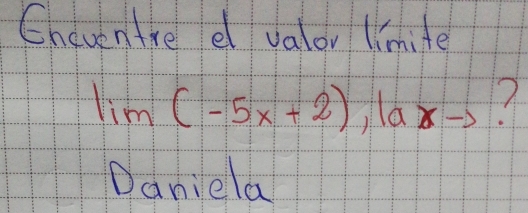 Encuentre el valor límite
lim (-5x+2), la x→ ?
Daniela